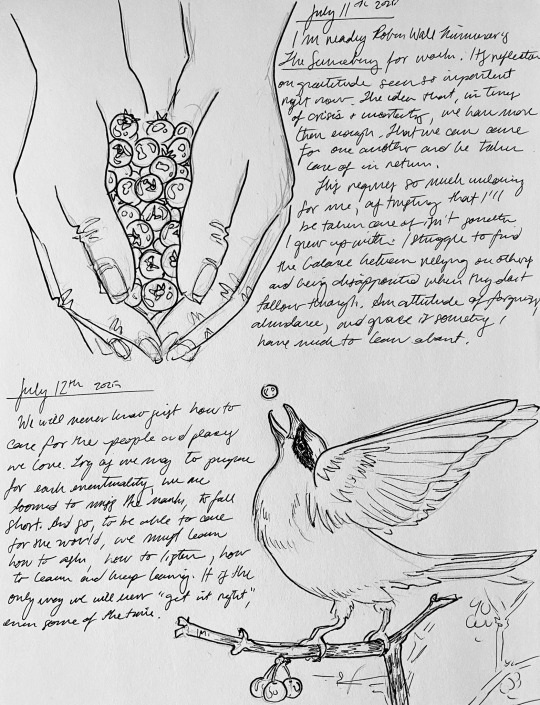 July 11th 2025
I'm reading Robin Wall Kimmerer's
The Serviceberry for work. Its reflection
on gratitude seem so important
right now. The idea that, in times
of crisis + uncertainty, we have more
than enough. That we can care
for one another and be taken
care of in return.
This requires so much unlearning
for me, as trusting that I'll
be taken care of isn't something
I grew up with. I struggle to find
the balance between relying on others
and being disappointed when they don't
follow through. An attitude of forgiveness,
abundance, and grace is something I
have much to learn about.
July 12th 2025
We will never know just how to
care for the people and places
we love. Try as we may to prepare
for each eventuality, we are
doomed to miss the mark, to fall
short. And so, to be able to care
for the world, we must learn
how to ask, how to listen, how
to learn and keep learning. It is the
only way we will ever "get it right",
even some of the time.